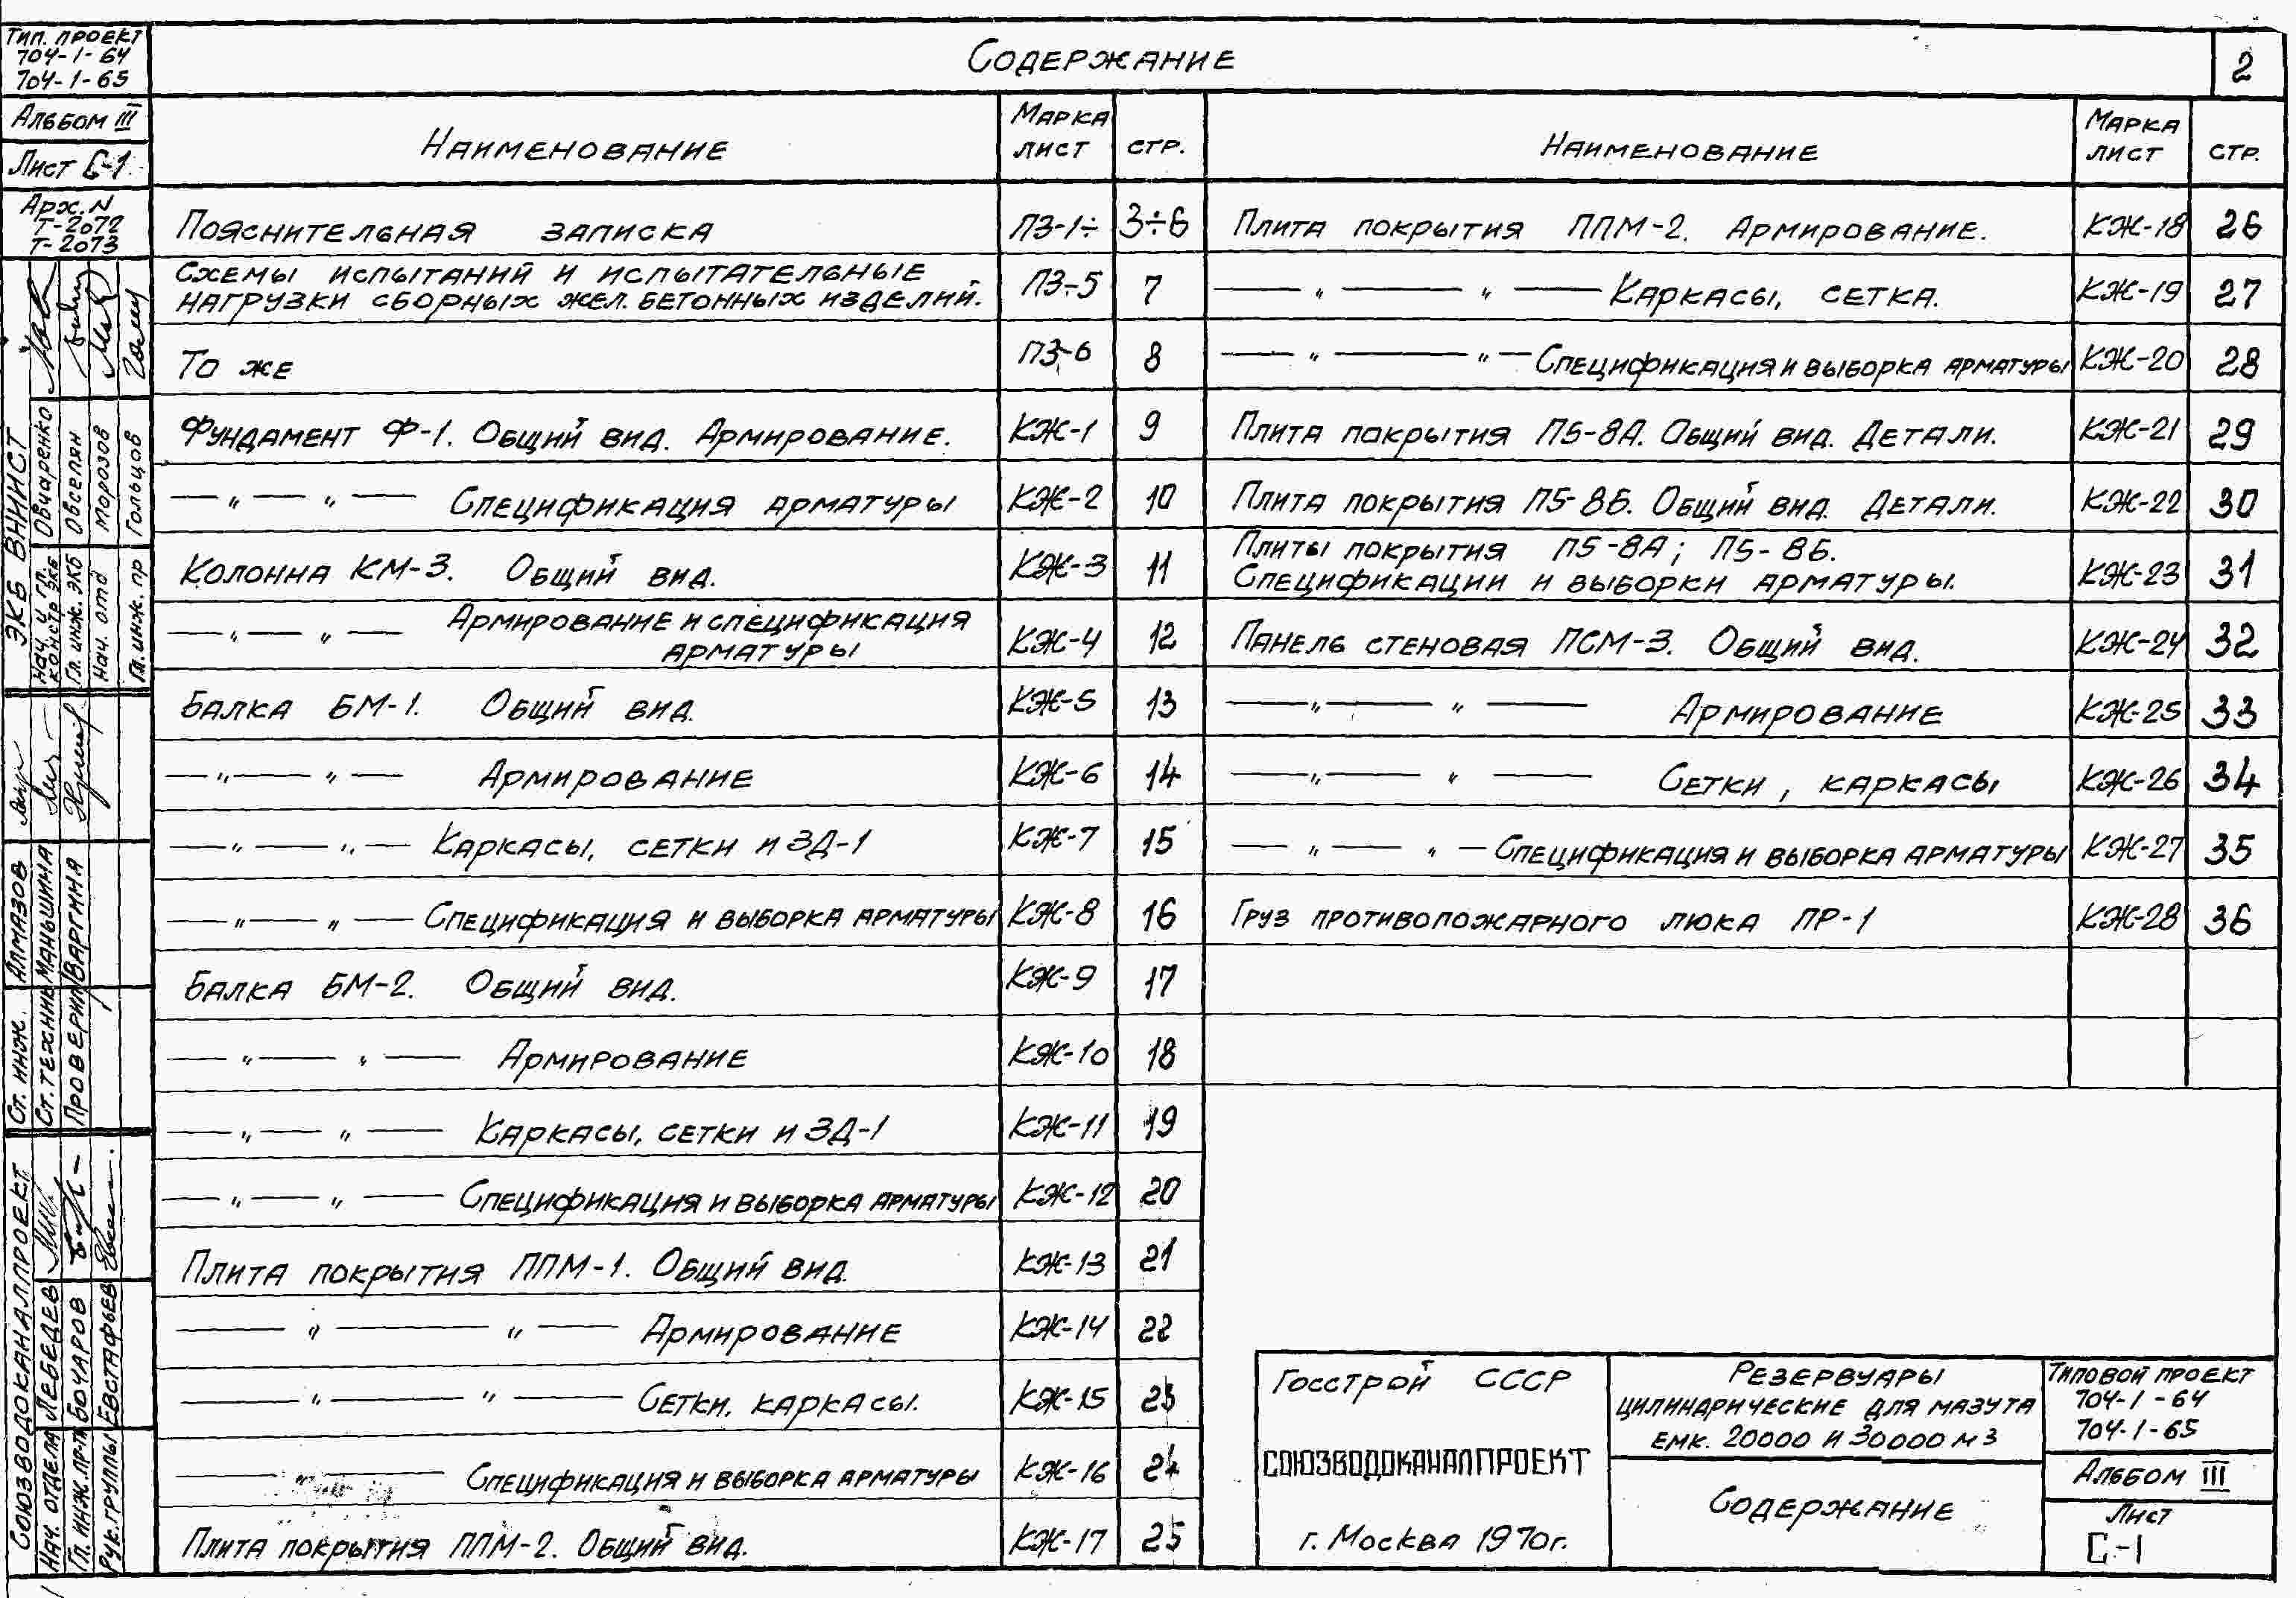 Тип. проект
704-1-64
704-1-65
Альбом III
Лист С-1
Арх. N
Т-2072
Т-2073
Содержание
2
Наименование
Марка лист
стр.
Пояснительная записка ПЗ-1÷ 3÷6
Схемы испытаний и испытательные
нагрузки сборных жел. бетонных изделий. ПЗ-5 7
То же ПЗ-6 8
Фундамент Ф-1. Общий вид. Армирование. КЖ-1 9
— " — " — Спецификация арматуры КЖ-2 10
Колонна КМ-3. Общий вид. КЖ-3 11
— " — " — Армирование и спецификация
арматуры КЖ-4 12
Балка БМ-1. Общий вид. КЖ-5 13
— " — " — Армирование КЖ-6 14
— " — " — Каркасы, сетки и ЗД-1 КЖ-7 15
— " — " — Спецификация и выборка арматуры КЖ-8 16
Балка БМ-2. Общий вид. КЖ-9 17
— " — " — Армирование КЖ-10 18
— " — " — Каркасы, сетки и ЗД-1 КЖ-11 19
— " — " — Спецификация и выборка арматуры КЖ-12 20
Плита покрытия ППМ-1. Общий вид. КЖ-13 21
— " — " — Армирование КЖ-14 22
— " — " — Сетки, каркасы. КЖ-15 23
— " — Спецификация и выборка арматуры КЖ-16 24
Плита покрытия ППМ-2. Общий вид. КЖ-17 25
Наименование
Марка лист
стр.
Плита покрытия ППМ-2. Армирование. КЖ-18 26
— " — " — Каркасы, сетка. КЖ-19 27
— " — " — Спецификация и выборка арматуры КЖ-20 28
Плита покрытия П5-8А. Общий вид. Детали. КЖ-21 29
Плита покрытия П5-8Б. Общий вид. Детали. КЖ-22 30
Плиты покрытия П5-8А; П5-8Б.
Спецификации и выборки арматуры. КЖ-23 31
Панель стеновая ПСМ-3. Общий вид. КЖ-24 32
— " — " — Армирование КЖ-25 33
— " — " — Сетки, каркасы КЖ-26 34
— " — " — Спецификация и выборка арматуры КЖ-27 35
Груз противопожарного люка ПР-1 КЖ-28 36
Госстрой СССР
СОЮЗВОДОКАНАЛПРОЕКТ
г. Москва 1970г.
Резервуары
цилиндрические для мазута
емк. 20000 и 30000 м3
Содержание
Типовой проект
704-1-64
704-1-65
Альбом III
Лист
С-1
ЭКБ ВНИИСТ
Нач. и гл. констр ЭКБ Овчаренко
Гл. инж. ЭКБ Овселян
Нач. отд Морозов
Гл. инж. пр Гольцов
Ст. инж. Алмазов
Ст. техник Маньшина
Проверил Варгина
Союзводоканалпроект
Нач. отдела Лебедев
Гл. инж. пр-та Бочаров
Рук. группы Евстафьев